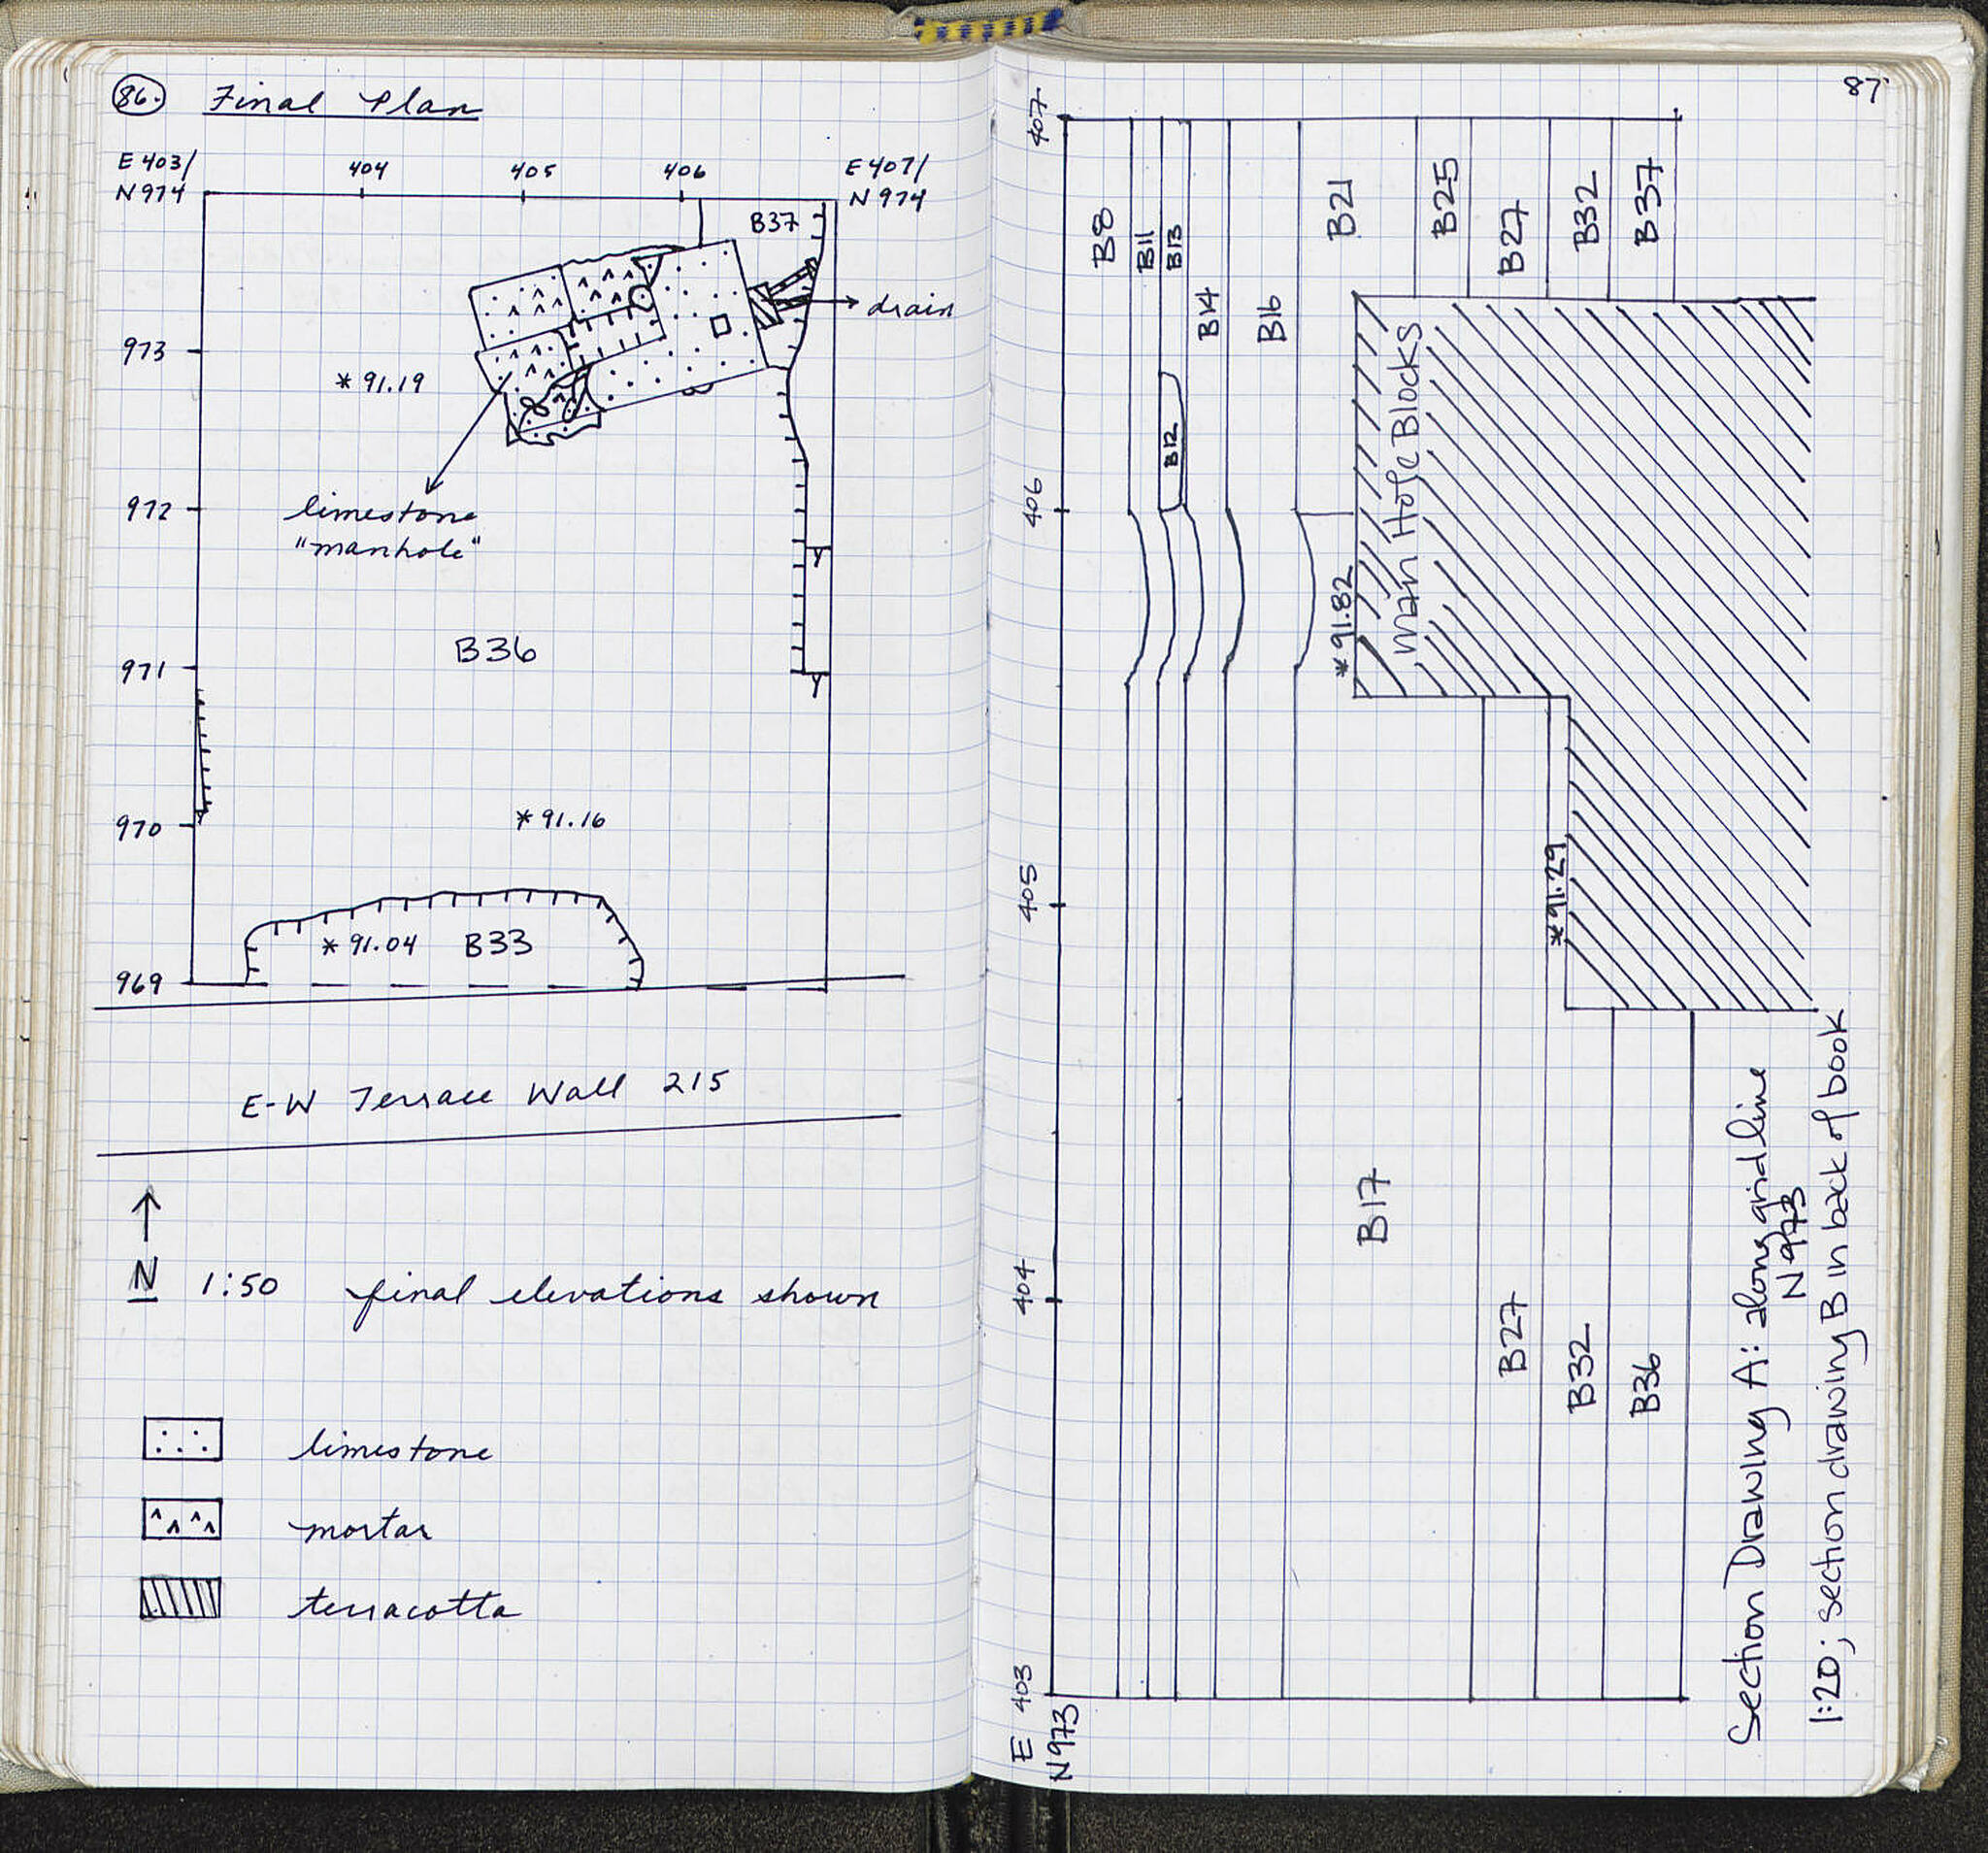 86. Final Plan
E 403/ 404 405 406 E 407/
N 974 N 974
B37
drain
973
* 91.19
972
limestone
"manhole"
B36
971
970
* 91.16
* 91.04 B33
969
E-W Terrace Wall 215
N 1:50 final elevations shown
limestone
mortar
terracotta
87
407
B8
B11
B13
B14
B16
B21
B25
B27
B32
B37
B12
406
* 91.82
Man Hole Blocks
405
* 91.29
B17
404
B27
B32
B36
E 403
N973
Section Drawing A: along grid line
N973
1:20; section drawing B in back of book